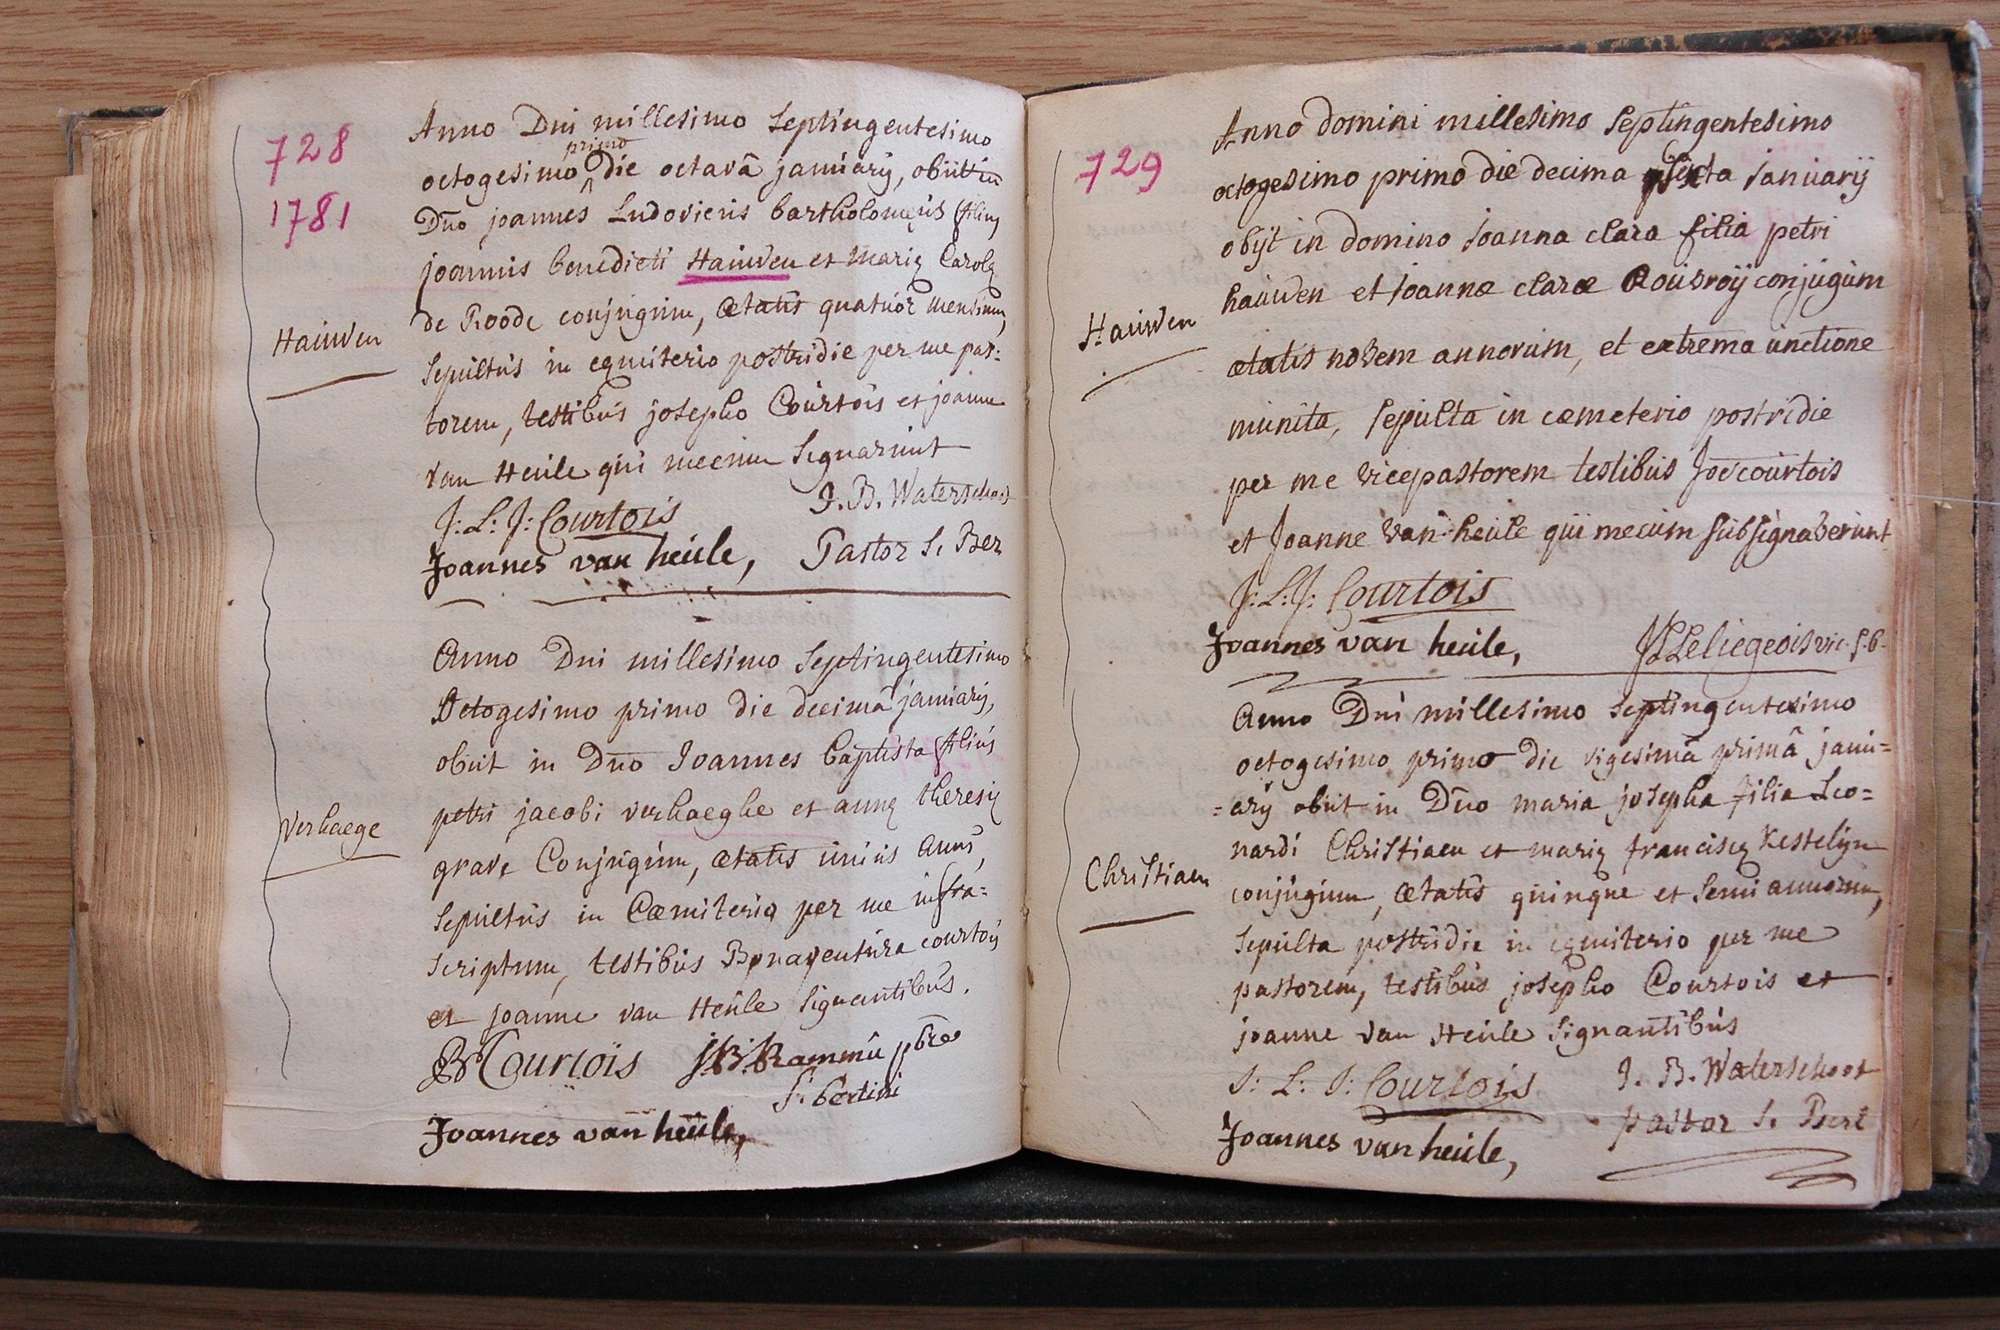 728
1781
Anno Dni millesimo Septingentesimo
primo
octogesimo die octavâ januarij, obiit in
Dno joannes Ludovicus bartholomęus filius
joannis benedicti Hauwen et Marię Carolę
de Roode conjugum, ætatis quatuor mensium,
Hauwen
Sepultus in cęmiterio postridie per me pas:
torem, testibus josepho Courtois et joanne
van Heule qui mecum Signarunt
J: L: J: Courtois J. B. Waterschoot
Joannes van heule, Pastor S. Ber
Anno Dni millesimo Septingentesimo
Octogesimo primo die decimâ januarij,
obiit in Dno Joannes baptista filius
petri jacobi verhaeghe et annę theresię
Verhaege
grave Conjugum, ætatis unius Anni,
Sepultus in Cæmiterio per me infra=
scriptum, testibus Bonaventura courtoij
et joanne van Heule Signantibus.
Courtois J.B. Rammu pbre
S: bertini
Joannes van heule,
729
Anno Domini millesimo Septingentesimo
octogesimo primo die decima sexta Januarij
obijt in domino Joanna clara filia petri
hauwen et Joannæ claræ Rouvroij conjugum
Hauwen
ætatis novem annorum, et extrema unctione
munita, Sepulta in cæmeterio postridie
per me vicepastorem testibus Jos courtois
et Joanne van heule qui mecum subsignaverunt
J: L: J: Courtois
Joannes van heule, JL Leliegeois vic. S. b.
Anno Dni millesimo Septingentesimo
octogesimo primo die vigesimâ primâ janu=
=arij obiit in Dno maria josepha filia Leo=
nardi Christiaen et marię franciscę Kestelijn
Christiaen
conjugum, ætatis quinque et Semi annorum,
Sepulta postridie in cęmiterio per me
pastorem, testibus josepho Courtois et
joanne van Heule Signantibus
J: L: J: Courtois J. B. Waterschoot
Joannes van heule, pastor S. Bert